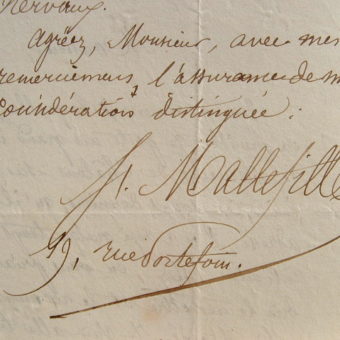 Nervaux.
Agréez, Monsieur, avec mes
remerciemens, l'assurance de m
Considération distinguée.
Mallefill
19, rue Portefoin.